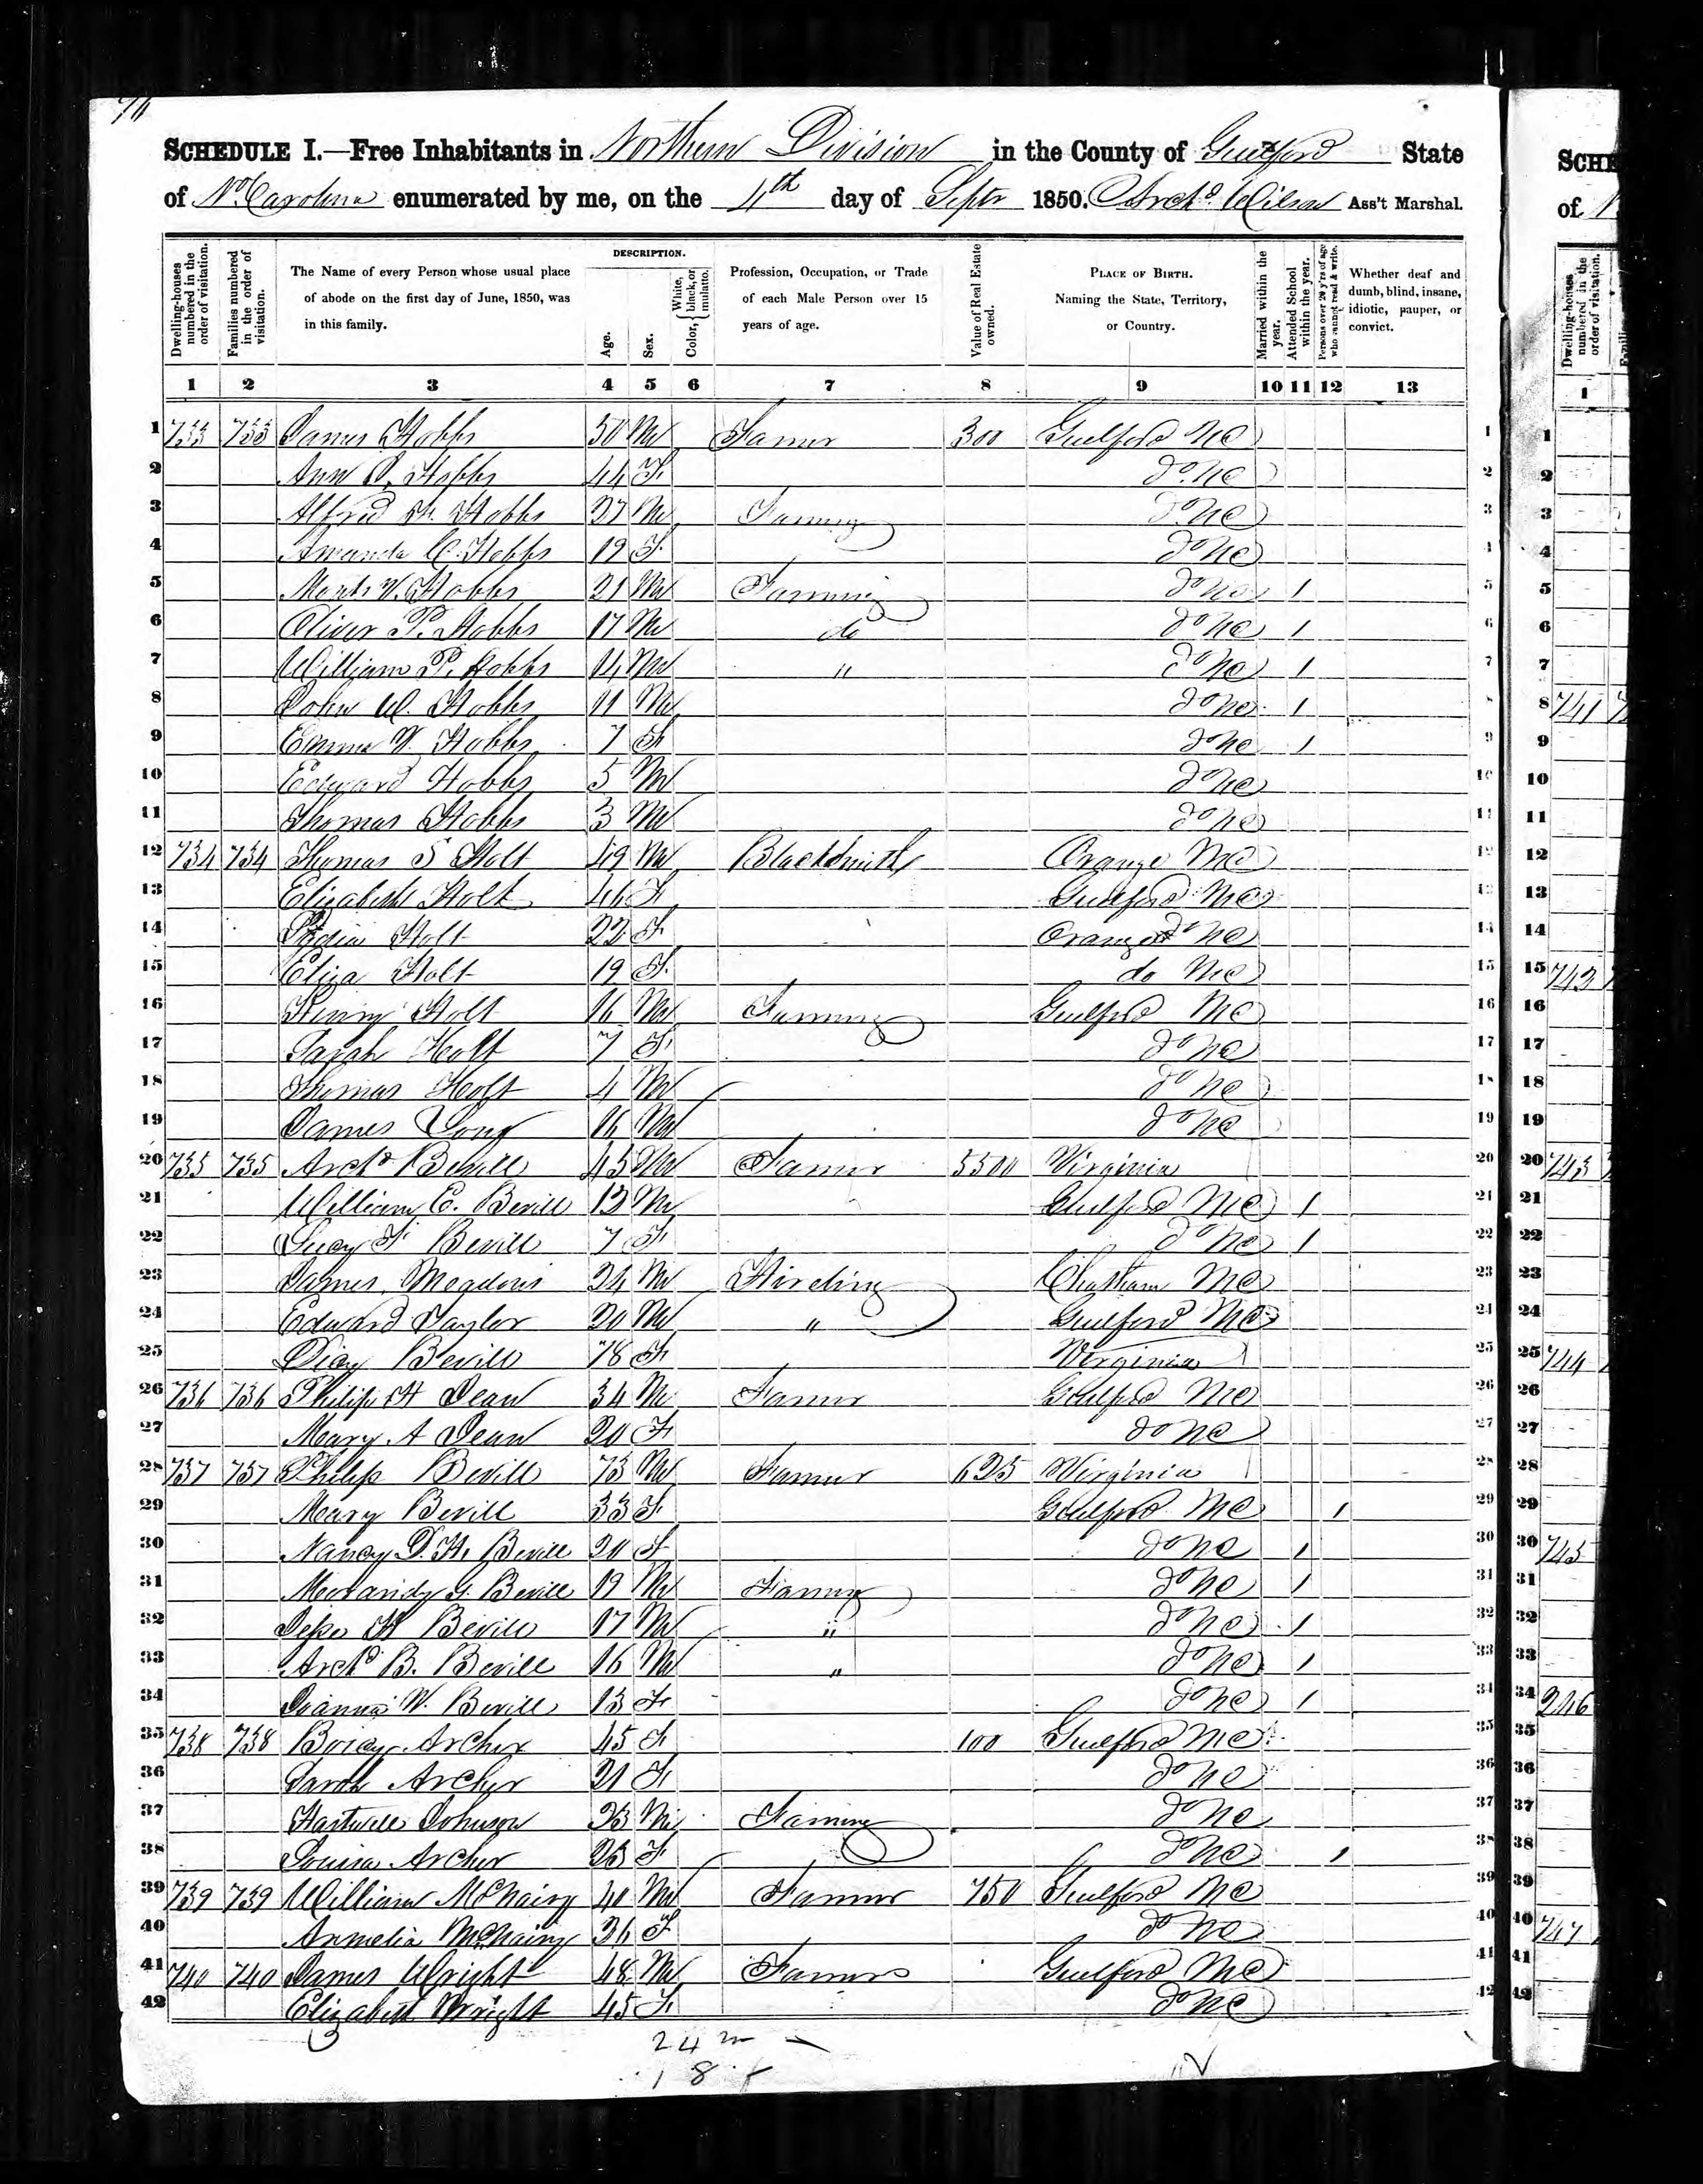 SCHEDULE I.—Free Inhabitants in Northern Division in the County of Guilford State
of No. Carolina enumerated by me, on the 4th day of Septr 1850. Archd. Wilson Ass't Marshal.
Dwelling-houses numbered in the order of visitation.
Families numbered in the order of visitation.
The Name of every Person whose usual place of abode on the first day of June, 1850, was in this family.
DESCRIPTION.
Age.
Sex.
Color, { White, black, or mulatto.
Profession, Occupation, or Trade of each Male Person over 15 years of age.
Value of Real Estate owned.
PLACE OF BIRTH. Naming the State, Territory, or Country.
Married within the year.
Attended School within the year.
Persons over 20 y'rs of age who cannot read & write.
Whether deaf and dumb, blind, insane, idiotic, pauper, or convict.
1 2 3 4 5 6 7 8 9 10 11 12 13
1 733 733 James Hobbs 50 M Farmer 300 Guilford NC 1
2 Ann Hobbs 44 F do NC 2
3 Alfred Hobbs 27 M Farming do NC 3
4 Amanda C. Hobbs 19 F do NC 4
5 W. Hobbs 21 M Farming do NC 1 5
6 Oliver P. Hobbs 17 M do do NC 1 6
7 William P. Hobbs 14 M " do NC 1 7
8 John W. Hobbs 11 M do NC 1 8
9 Emma V. Hobbs 7 F do NC 1 9
10 Edward Hobbs 5 M do NC 10
11 Thomas Hobbs 3 M do NC 11
12 734 734 Thomas S Holt 49 M Blacksmith Orange NC 12
13 Elizabeth Holt 46 F Guilford NC 13
14 Holt 22 F Orange NC 14
15 Eliza Holt 19 F do NC 15
16 Henry Holt 16 M Farming Guilford NC 16
17 Sarah Holt 7 F do NC 17
18 Thomas Holt 4 M do NC 18
19 James Long 16 M do NC 19
20 735 735 Archd Bevill 45 M Farmer 5500 Virginia 20
21 William E. Bevill 13 M Guilford NC 1 21
22 Lucy F Bevill 7 F do NC 1 22
23 James Meadows 24 M Hireling Chatham NC 23
24 Edward Taylor 20 M " Guilford NC 24
25 Dicy Bevill 78 F Virginia 25
26 736 736 Philip H Dean 34 M Farmer Guilford NC 26
27 Mary A Dean 20 F do NC 27
28 737 737 Philip Bevill 73 M Farmer 625 Virginia 28
29 Mary Bevill 33 F Guilford NC 1 29
30 Nancy D. H. Bevill 20 F do NC 1 30
31 G. Bevill 19 M Farming do NC 1 31
32 H Bevill 17 M " do NC 1 32
33 Archd B. Bevill 16 M " do NC 1 33
34 W. Bevill 13 F do NC 1 34
35 738 738 Archer 45 F 100 Guilford NC 35
36 Sarah Archer 21 F do NC 36
37 Hartwell Johnson 23 M Farming do NC 37
38 Louisa Archer 23 F do NC 1 38
39 739 739 William McNairy 40 M Farmer 750 Guilford NC 39
40 McNairy 36 F do NC 40
41 740 740 James Wright 48 M Farmer Guilford NC 41
42 Elizabeth Wright 45 F do NC 42
24 m
18 f
SCHE
of N
Dwelling-houses numbered in the order of visitation.
1
1
2
3
4
5
6
7
8 741
9
10
11
12
13
14
15 742
16
17
18
19
20 743
21
22
23
24
25 744
26
27
28
29
30 745
31
32
33
34 746
35
36
37
38
39
40 747
41
42